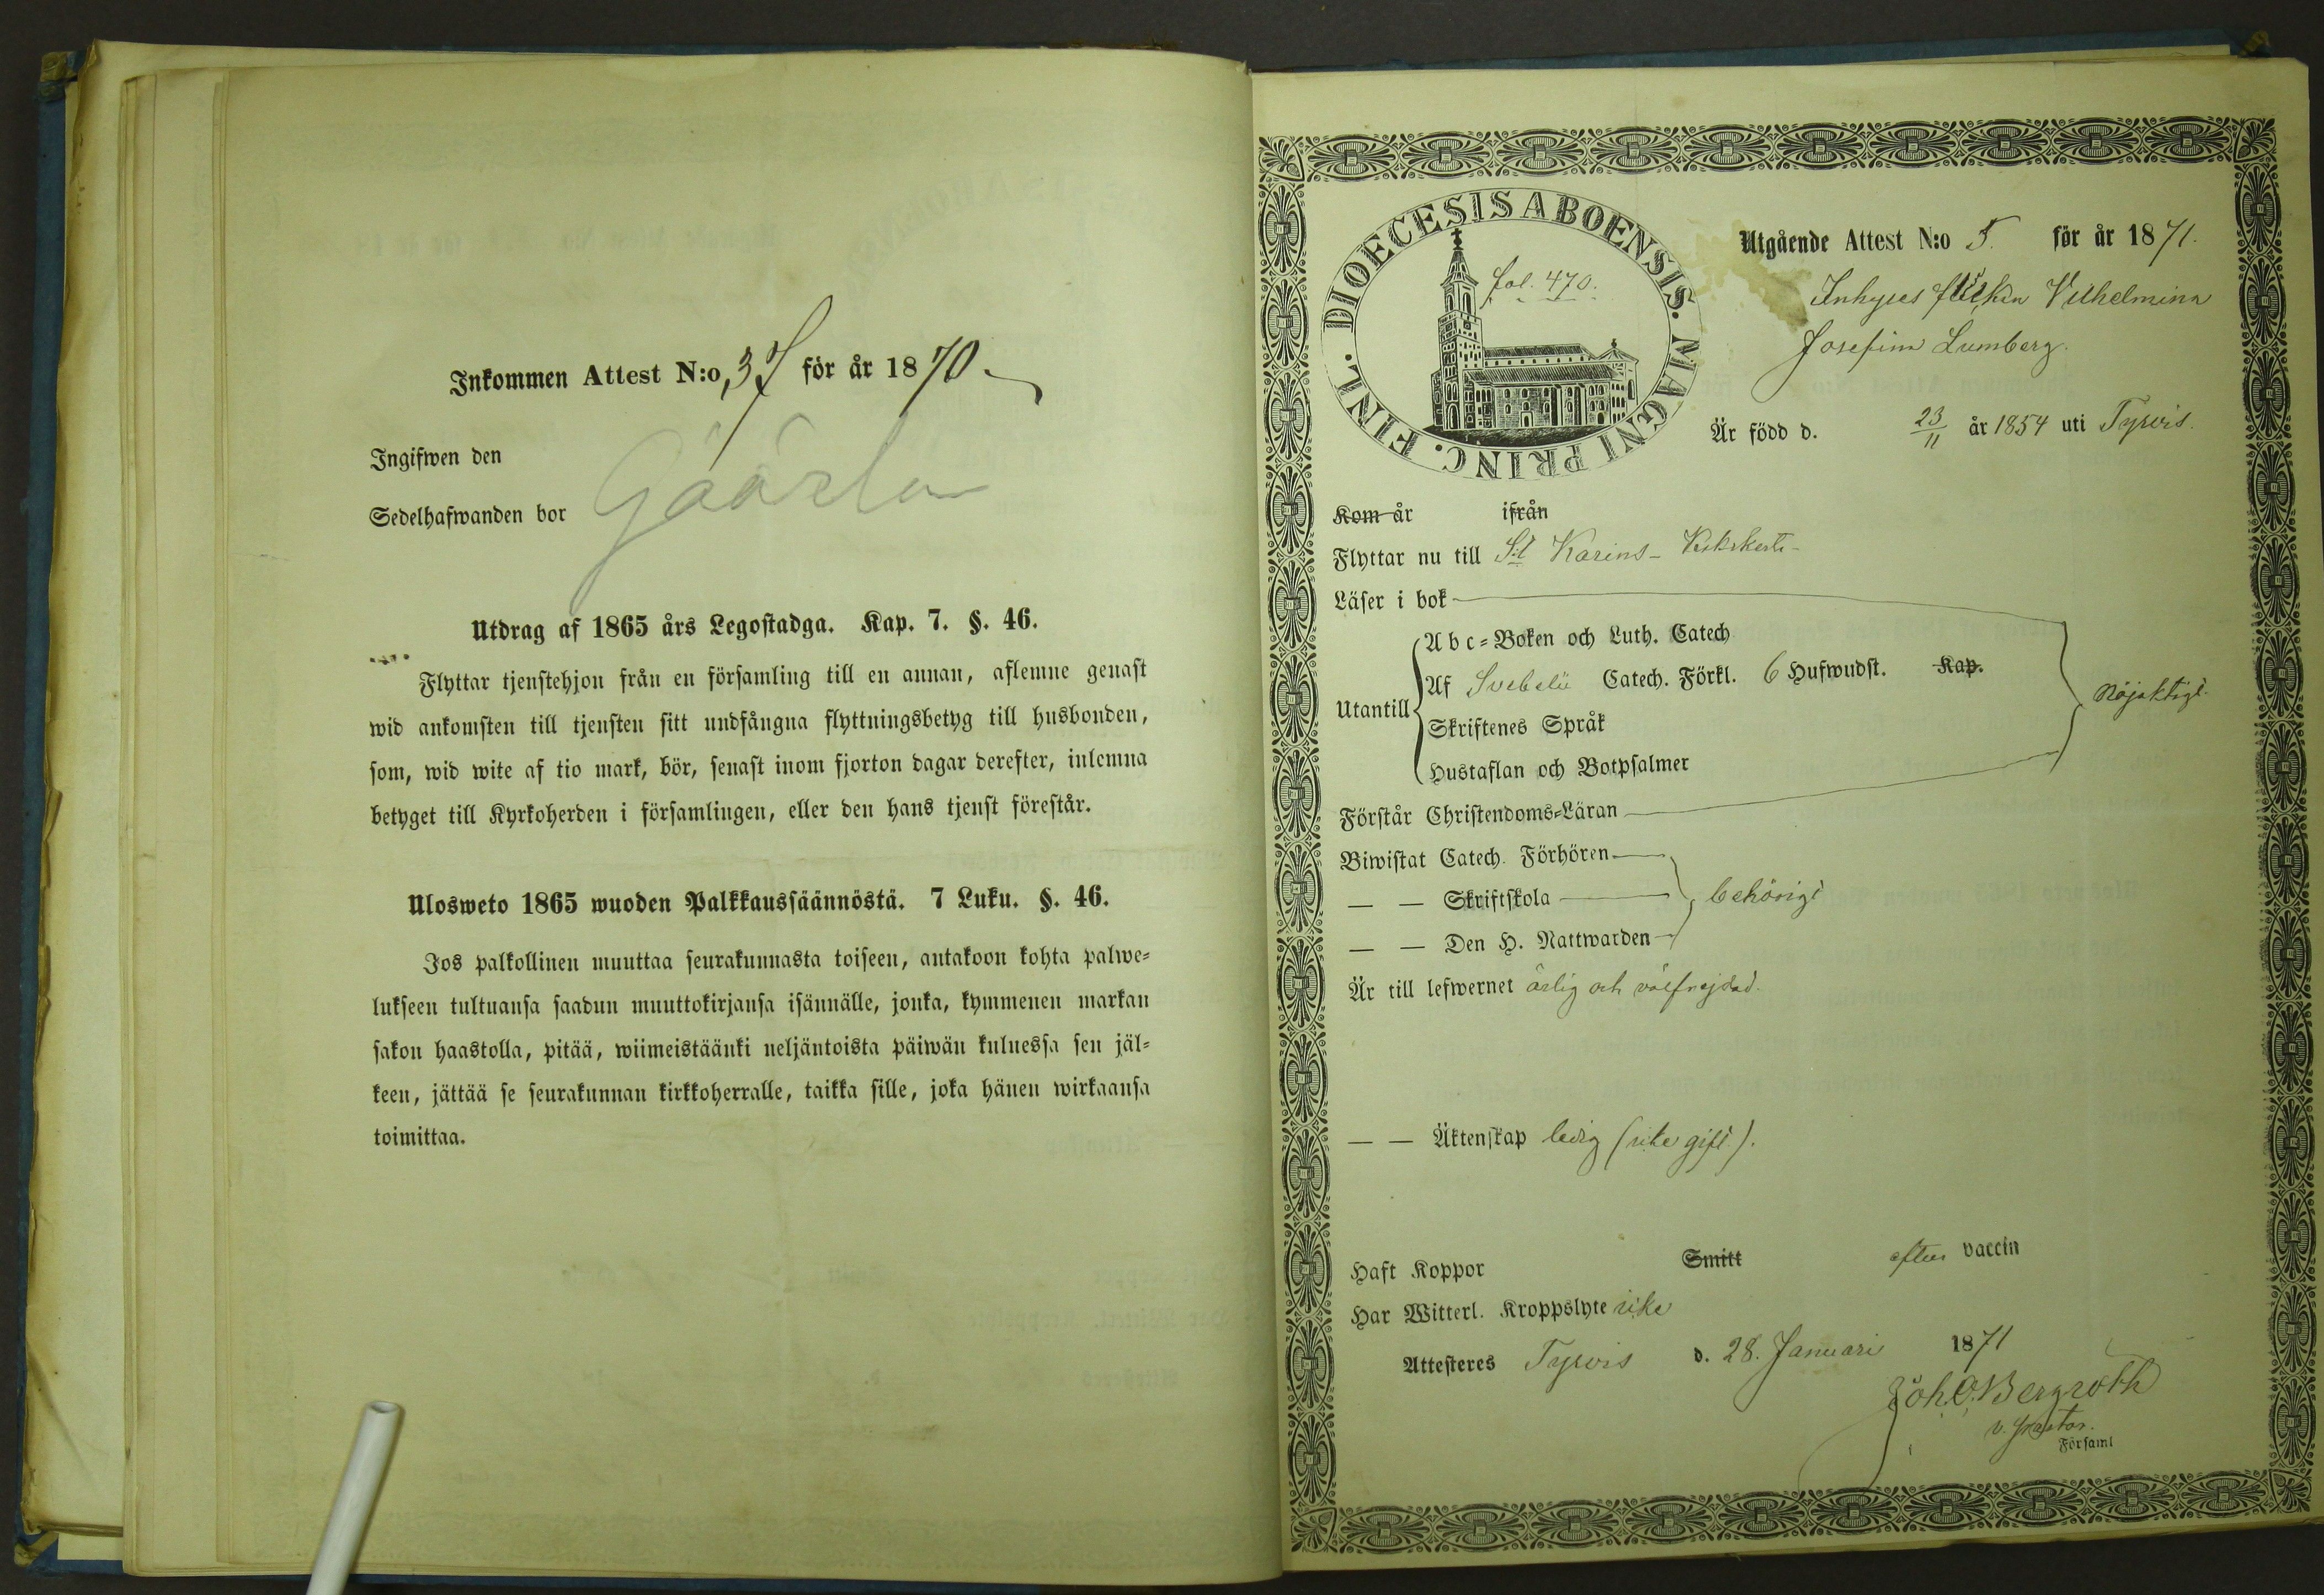 Inkommen Attest N:o 37 för år 1870.
Ingifwen den
Sedelhafwanden bor
Utdrag af 1865 års Legostadga. Kap. 7. §. 46.
Flyttar tjenstehjon från en församling till en annan, aflemne genast
wid ankomsten till tjensten sitt undfångna flyttningsbetyg till husbonden,
som, wid wite af tio mark, bör, senast inom fjorton dagar derefter, inlemna
betyget till Kyrkoherden i församlingen, eller den hans tjenst förestår.
Ulosweto 1865 wuoden Palkkaussäännöstä. 7 Luku. §. 46.
Jos palkollinen muuttaa seurakunnasta toiseen, antakoon kohta palwe=
lukseen tultuansa saadun muuttokirjansa isännälle, jonka, kymmenen markan
sakon haastolla, pitää, wiimeistäänki neljäntoista päiwän kuluessa sen jäl=
keen, jättää se seurakunnan kirkkoherralle, taikka sille, joka hänen wirkaansa
toimittaa.
DIOECESIS ABOENSIS. MAGNI PRINC. FINL.
fol. 470.
Utgående Attest N:o 5. för år 1871.
Inhyses flickan Vilhelmina
Josefina Lumberg.
Är född d. 23/11 år 1854 uti Tyrvis.
Kom år ifrån
Flyttar nu till S:t Karins -
Läser i bok
Utantill
A b c=Boken och Luth. Catech
Af Svebelii Catech. Förkl. 6 Hufwudst. Kap.
Skriftenes Språk
Hustaflan och Botpsalmer
Nöjaktigt.
Förstår Christendoms=Läran
Biwistat Catech. Förhören
— — Skriftskola behörigt
— — Den H. Nattwarden
Är till lefwernet ärlig och välfrejdad.
— — Äktenskap ledig (icke gift).
Haft Koppor Smitt efter vaccin
Har Witterl. Kroppslyte icke
Attesteres Tyrvis d. 28. Januari 1871
Joh. O. Bergroth
v. pastor.
Församl